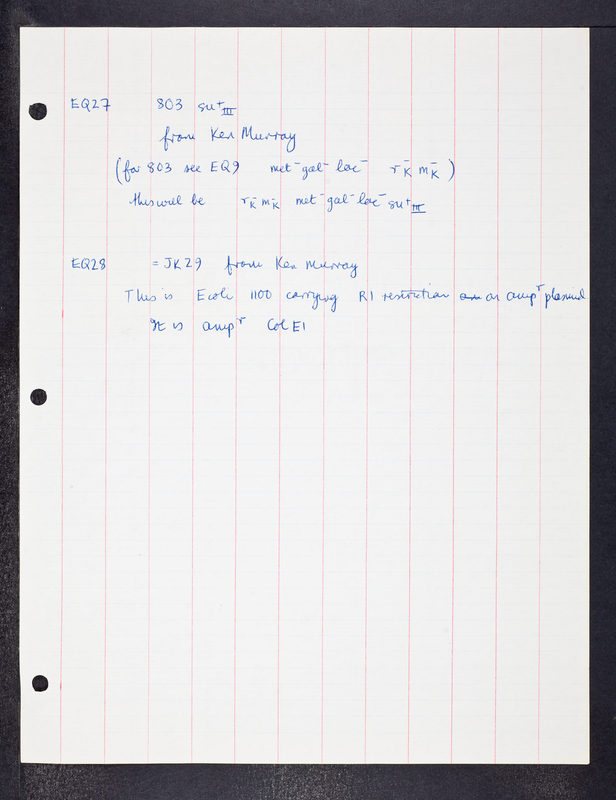 EQ27 803 su⁺III
from Ken Murray
(for 803 see EQ9 met⁻gal⁻ lac⁻ rK⁻ mK⁻)
this will be rK⁻ mK⁻ met⁻gal⁻lac⁻su⁺III
EQ28 = JK29 from Ken Murray
This is Ecoli 1100 carrying R1 restriction on an ampʳ plasmid
It is ampʳ Col E1